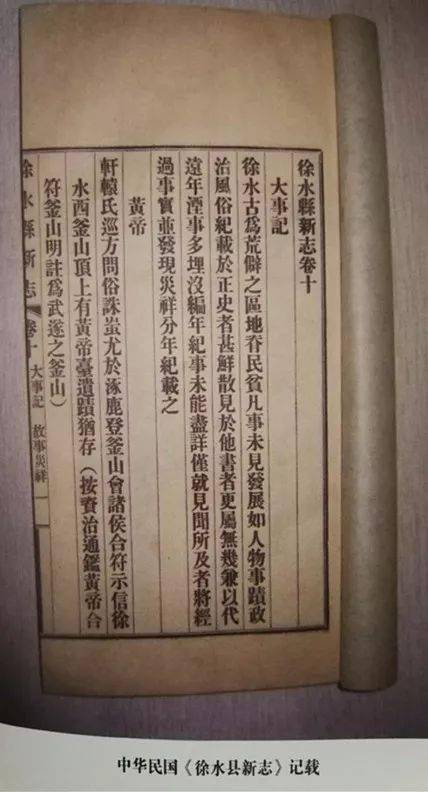 徐水縣新志卷十
大事記
徐水古爲荒僻之區地脊民貧凡事未見發展如人物事蹟政
治風俗紀載於正史者甚鮮散見於他書者更屬無幾兼以代
遠年湮事多埋沒編年紀事未能盡詳僅就見聞所及者將經
過事實並發現災祥分年紀載之
黃帝
軒轅氏巡方問俗誅蚩尤於涿鹿登釜山會諸侯合符示信徐
水西釜山頂上有黃帝臺遺蹟猶存（按資治通鑑黃帝合
符釜山明註爲武遂之釜山）
徐水縣新志 卷十 大事記 故事災祥 一
中华民国《徐水县新志》记载